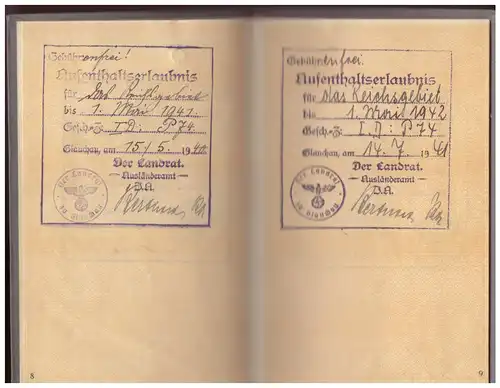 Gebührenfrei!
Aufenthaltserlaubnis
für das Reichsgebiet
bis 1. Mai 1941.
Gesch.-Z: I D: P 74
Glauchau, am 15/5. 1940
Der Landrat.
Ausländeramt
D.A.
Der Landrat
zu Glauchau
8
Gebührenfrei.
Aufenthaltserlaubnis
für das Reichsgebiet
bis 1. Mai 1942
Gesch.-Z: I D: P 74
Glauchau, am 14. 7. 1941
Der Landrat.
Ausländeramt
D.A.
Der Landrat
zu Glauchau
9